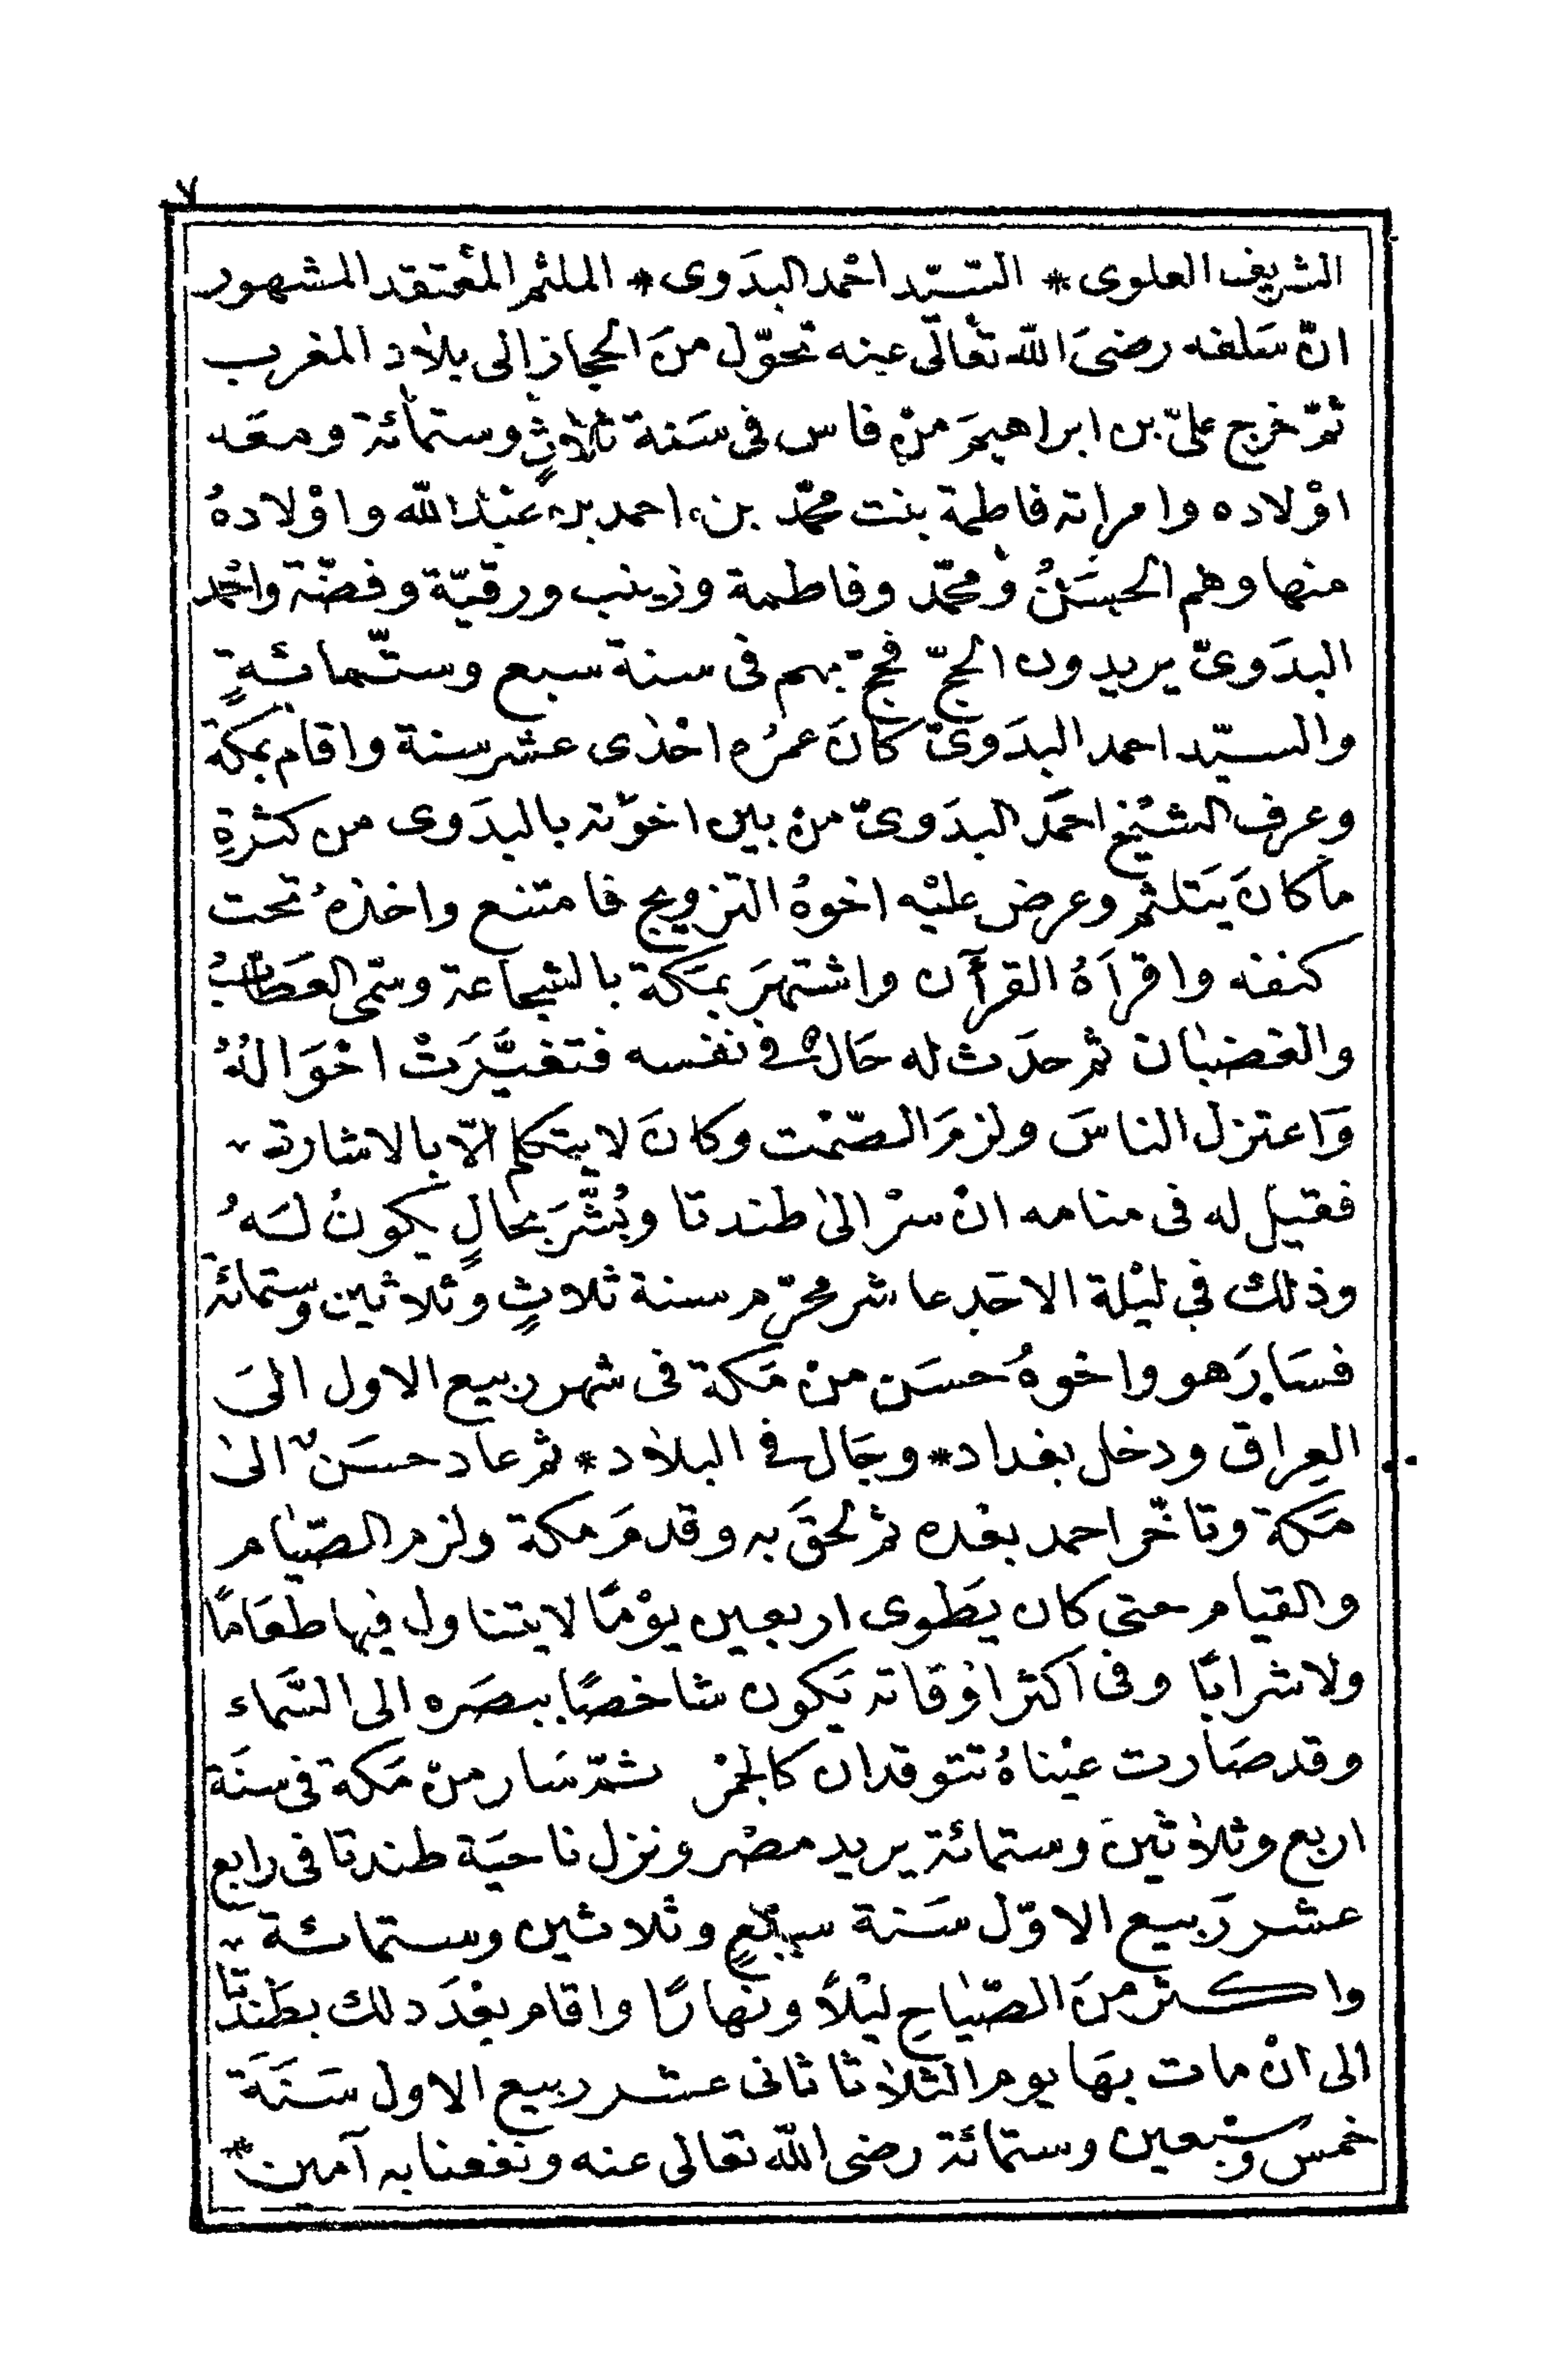 ٧
الشريف العلوى * السّيّد احْمد البدَوى * الملثم المعْتقد المشهور
انّ سَلفه رضىَ اللّه تعَالى عنه تحوّل منَ الحجاز الى بلاد المغرب
ثمّ خرج علىّ بن ابراهيمَ منْ فاس فى سَنة ثلاثٍ وستمائة ومعَه
اوْلاده وامراته فاطمة بنت محمّد بن احمد بن عبْد اللّه واوْلادهُ
منها وهم الحسَنُ ومحمّد وفاطمة وزينب ورقيّة وفضّة واحْمد
البدَوىّ يريدون الحجّ فحجّ بهم فى سنة سبع وستّمائةٍ
والسيّد احمد البدَوىّ كانَ عمرُه احْدى عشر سنة واقام بمكة
وعرف الشيْخ احمَد البدَوىّ منْ بين اخوَته بالبدَوى من كثرةِ
ما كانَ يَتلثم وعرض عليْه اخوهُ التزويج فامتنع واخذهُ تحت
كنفه واقرَاهُ القرآن واشتهرَ بمَكة بالشجاعة وسمّى العَطابُ
والغضبان ثم حدَث له حَالٌ فى نفسه فتغيَّرَتْ احْوَالهُ
وَاعتزل الناسَ ولزمَ الصّمْت وكانَ لا يتكلم الّا بالاشارة
فقيل له فى منامه انْ سرْ الى طندتا وبُشّرَ بحالٍ يكونُ لهُ
وذلك فى ليْلة الاحَد عاشر محرّم سنة ثلاثٍ وثلاثين وستمائة
فسَارَ هو واخوهُ حسَن منْ مَكة فى شهر ربيع الاول الىَ
العراق ودخل بغداد * وجَال فى البلاد * ثم عاد حسَنٌ الى
مَكة وتاخّر احمد بعْده ثم لحقَ به وقدمَ مكة ولزم الصّيام
والقيام حتى كان يَطوى اربعين يوْمًا لا يتناول فيها طعَامًا
ولا شرابًا وفى اكثر اوْقاته يَكون شاخصًا ببصَره الى السَّماء
وقد صَارت عيْناهُ تتوقدان كالجمْر ثمّ سَار منْ مَكة فى سنَة
اربع وثلاثينَ وستمائة يريد مصْر ونزل ناحيَة طندتا فى رابع
عشر رَبيع الاوّل سَنة سبعٍ وثلاثين وستمائة
واكثر منَ الصّياحِ ليْلًا ونهارًا واقام بعْدَ ذلك بطَندَتا
الى انْ مات بهَا يوم الثلاثا ثانى عشر ربيع الاول سَنَة
خمس وسَبْعين وستمائة رضى اللّه تعالى عنه ونفعنا به آمين *